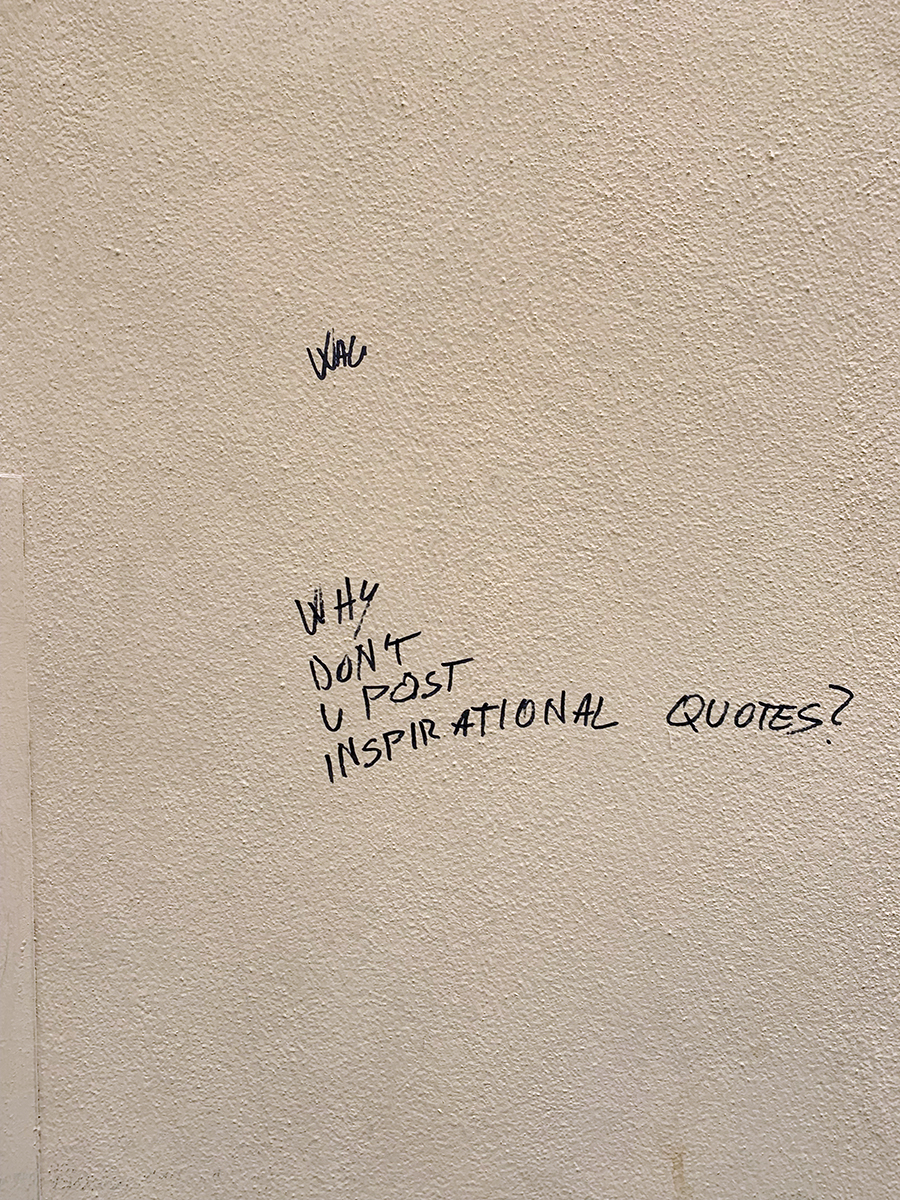 WHY
DON'T
U POST
INSPIRATIONAL QUOTES?